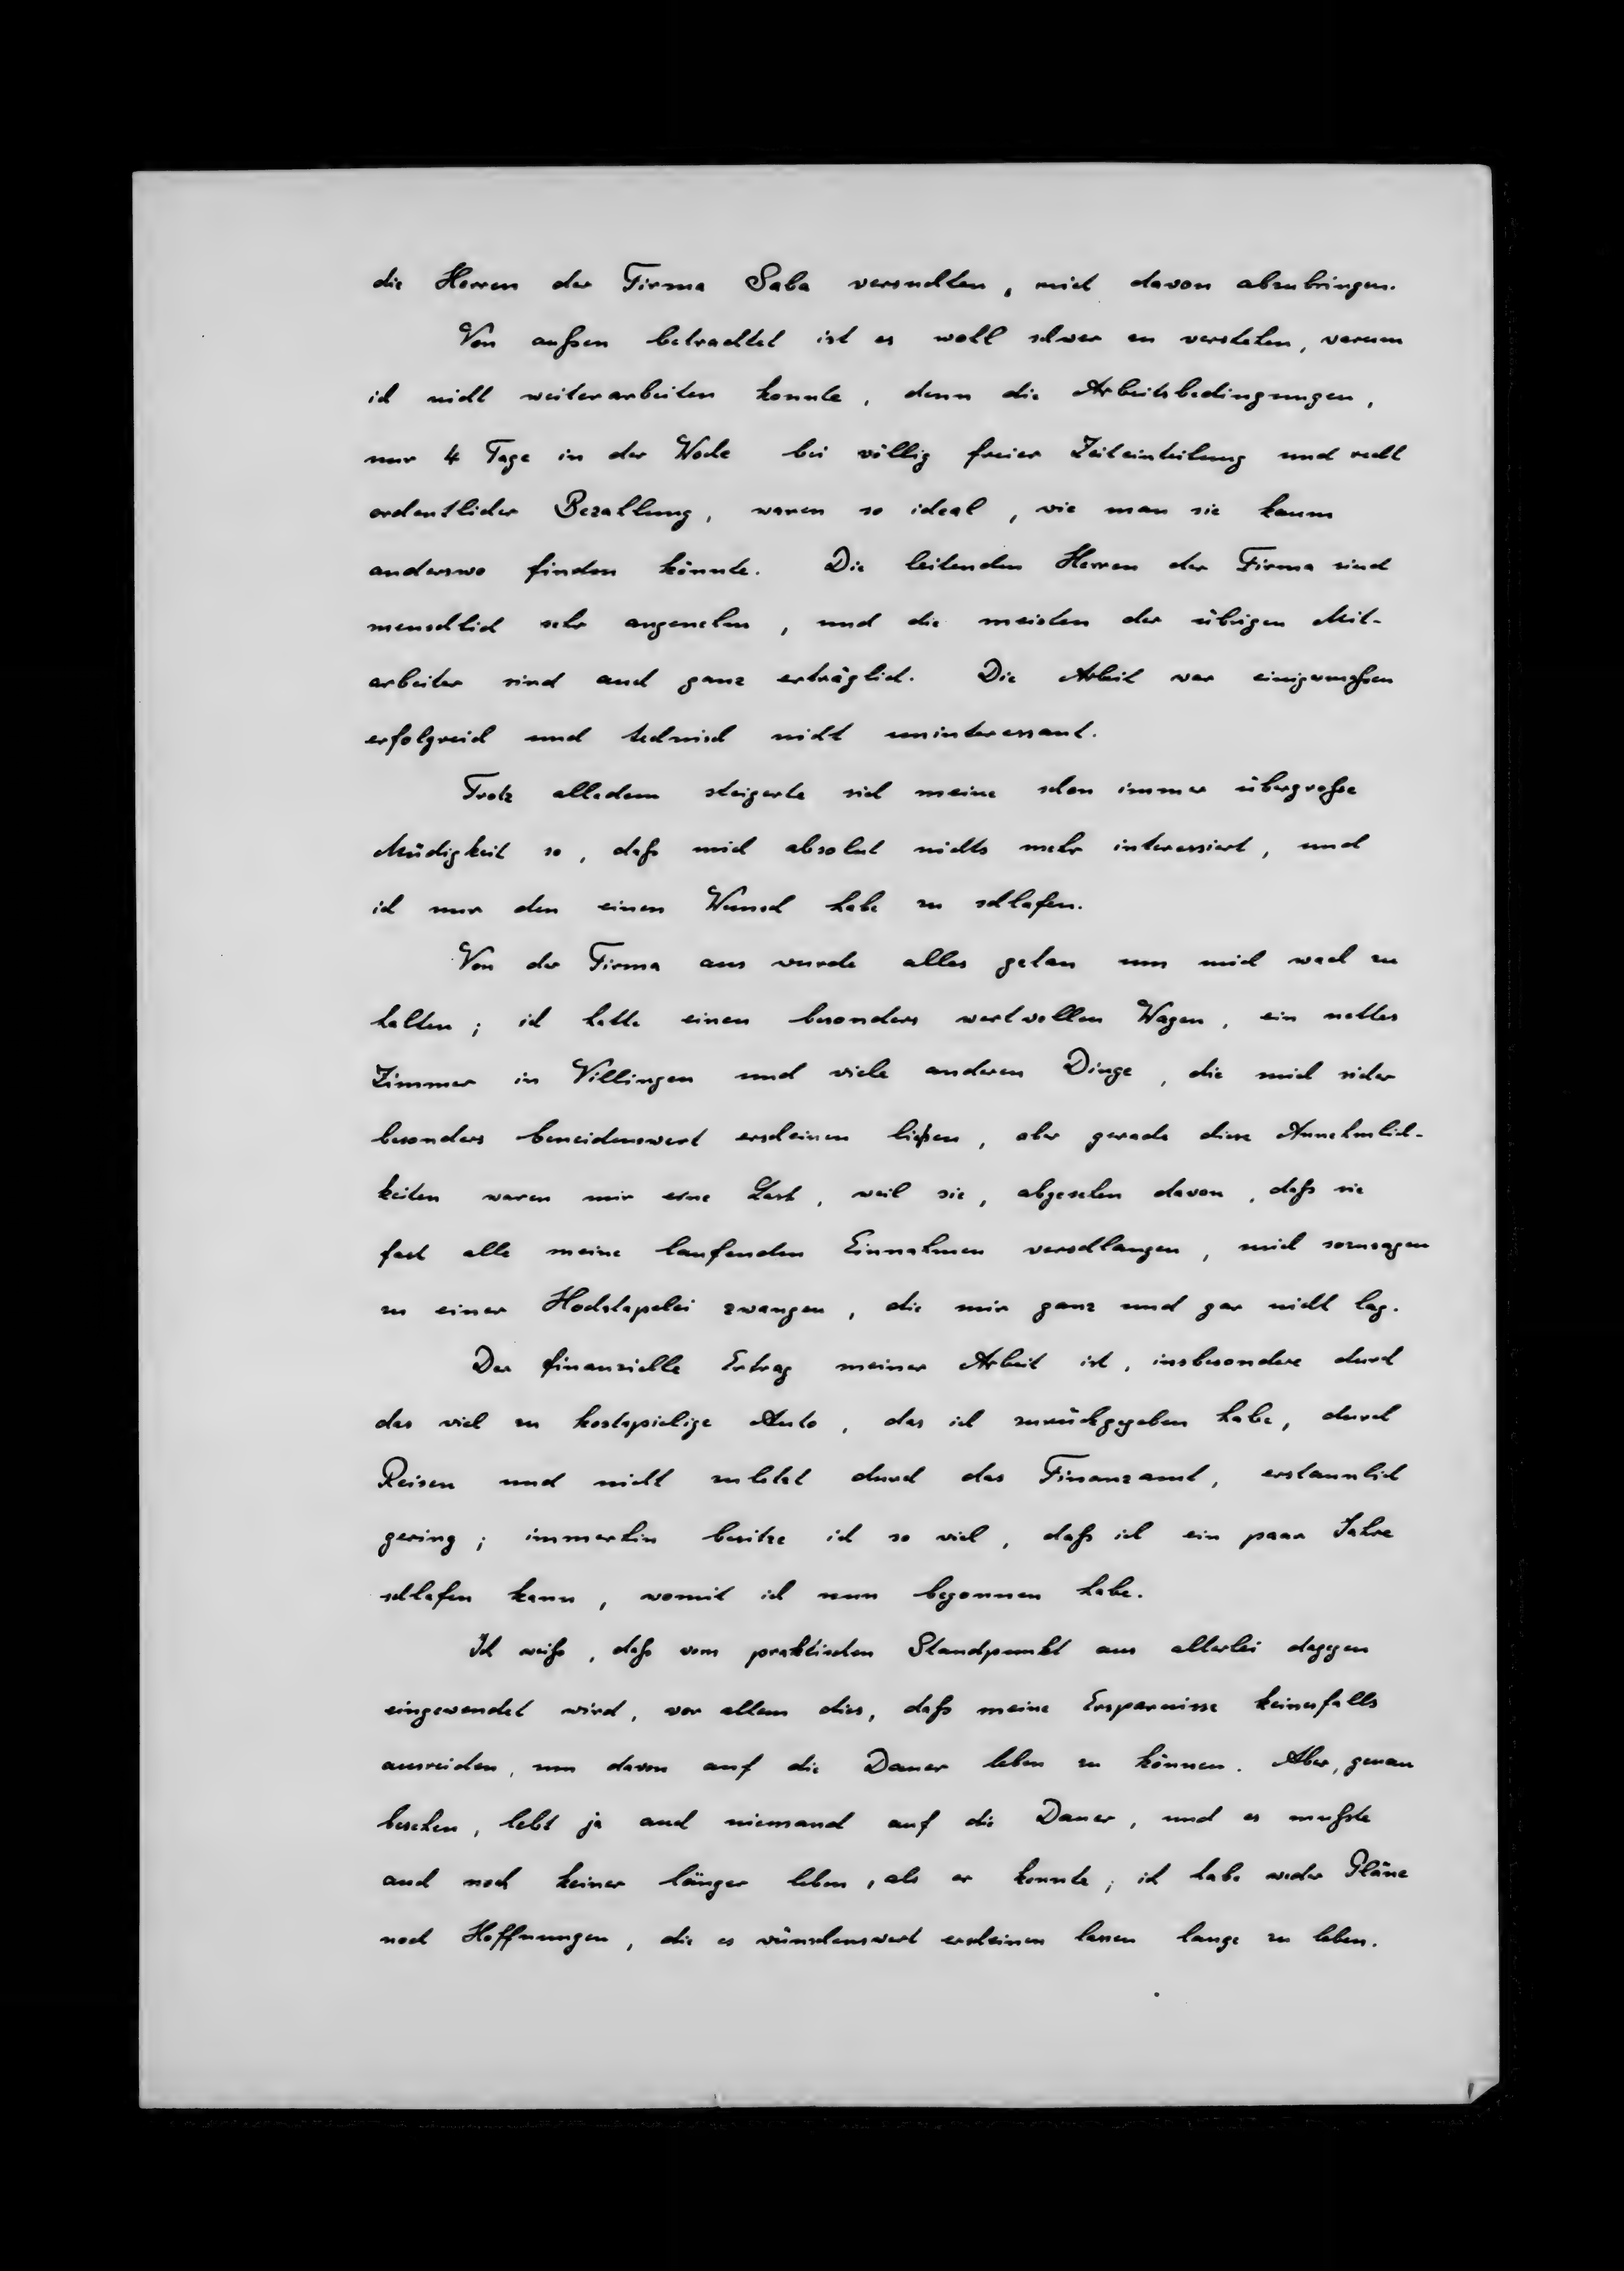 die Herren der Firma Saba versuchten, mich davon abzubringen.
Von außen betrachtet ist es wohl schwer zu verstehen, warum
ich nicht weiterarbeiten konnte, denn die Arbeitsbedingungen,
nur 4 Tage in der Woche bei völlig freier Zeiteinteilung und recht
ordentlicher Bezahlung, waren so ideal, wie man sie kaum
anderswo finden könnte. Die leitenden Herren der Firma sind
menschlich sehr angenehm, und die meisten der übrigen Mit-
arbeiter sind auch ganz erträglich. Die Arbeit war einigermaßen
erfolgreich und technisch nicht uninteressant.
Trotz alledem steigerte sich meine schon immer übergroße
Müdigkeit so, daß mich absolut nichts mehr interessiert, und
ich nur den einen Wunsch habe zu schlafen.
Von der Firma aus wurde alles getan um mich wach zu
halten; ich hatte einen besonders wertvollen Wagen, ein nettes
Zimmer in Villingen und viele anderen Dinge, die mich sicher
besonders beneidenswert erscheinen ließen, aber gerade diese Annehmlich-
keiten waren mir eine Last, weil sie, abgesehen davon, daß sie
fast alle meine laufenden Einnahmen verschlangen, mich sozusagen
zu einer Hochstapelei zwangen, die mir ganz und gar nicht lag.
Der finanzielle Ertrag meiner Arbeit ist, insbesondere durch
das viel zu kostspielige Auto, das ich zurückgegeben habe, durch
Reisen und nicht zuletzt durch das Finanzamt, erstaunlich
gering; immerhin besitze ich so viel, daß ich ein paar Jahre
schlafen kann, womit ich nun begonnen habe.
Ich weiß, daß vom praktischen Standpunkt aus allerlei dagegen
eingewendet wird, vor allem dies, daß meine Ersparnisse keinesfalls
ausreichen, um davon auf die Dauer leben zu können. Aber, genau
besehen, lebt ja auch niemand auf die Dauer, und es mußte
auch noch keiner länger leben, als er konnte; ich habe weder Pläne
noch Hoffnungen, die es wünschenswert erscheinen lassen lange zu leben.